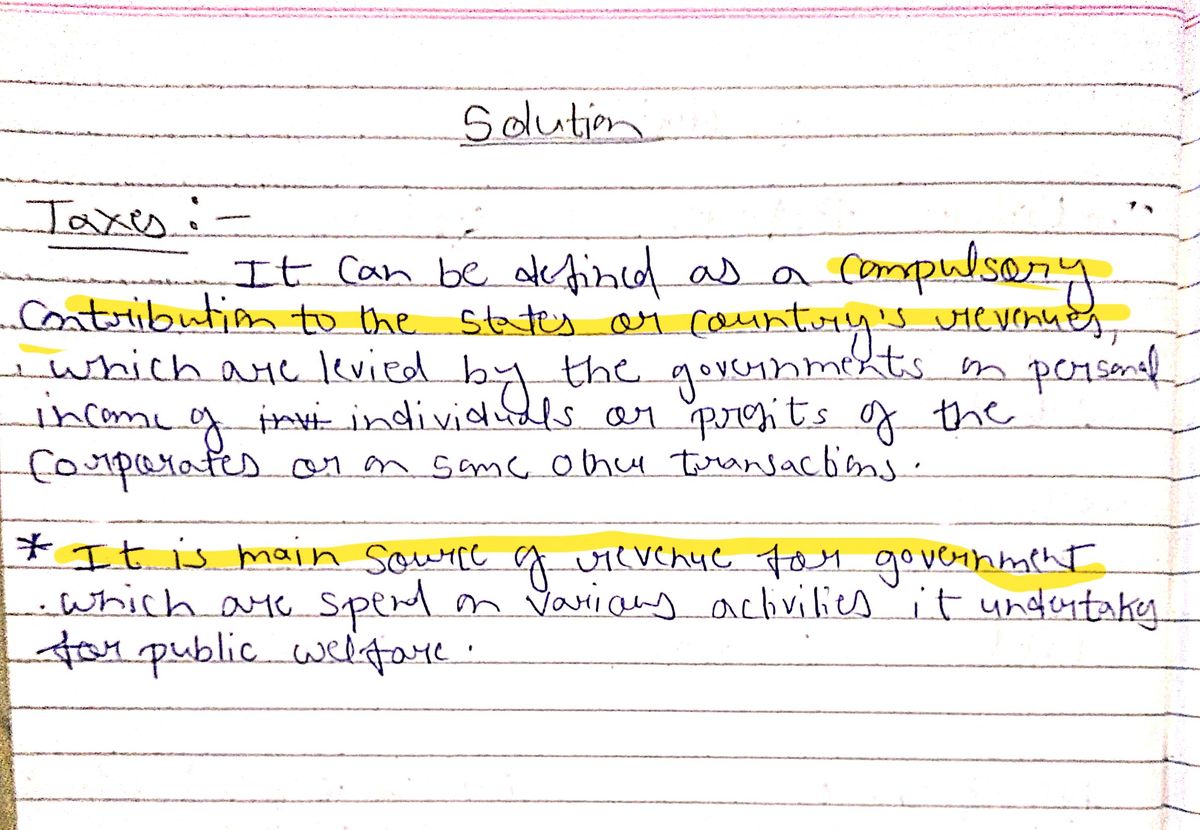 Solution
Taxes :-
It can be defined as a compulsory
contribution to the state's or country's revenues,
which are levied by the governments on personal
income of individuals or profits of the
corporates or on some other transactions.
* It is main source of revenue for government
which are spend on various activities it undertakes
for public welfare.